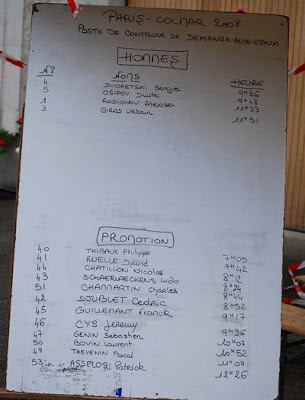 PARIS-COLMAR 2008
POSTE DE CONTROLE DE DEMANGE-AUX-EAUX
HOMMES
N° NOMS HEURE
4 DVORETSKI Serguei 9H36
5 OSIPOV Dmitri 9H48
1 RODIONOV Alexsei 11H33
3 GIROD Urbain 11H51
PROMOTION
40 THIBAUX Philippe 7H05
41 RUELLE David 7H42
44 CHATILLON Nicolas
43 SCHAERLAECKENS Wilo
51 CHAMARTIN Charles 8H24
42 DOUBLET Cedric 8H44
45 GUILLENANT Franck 8H52
46 CYS Jeremy 9H17
47 GENIN Sebastien 9H36
50 BOVIN Laurent 10H07
49 THEVENIN Pascal 10H52
53 Patrick 11H09
12H26